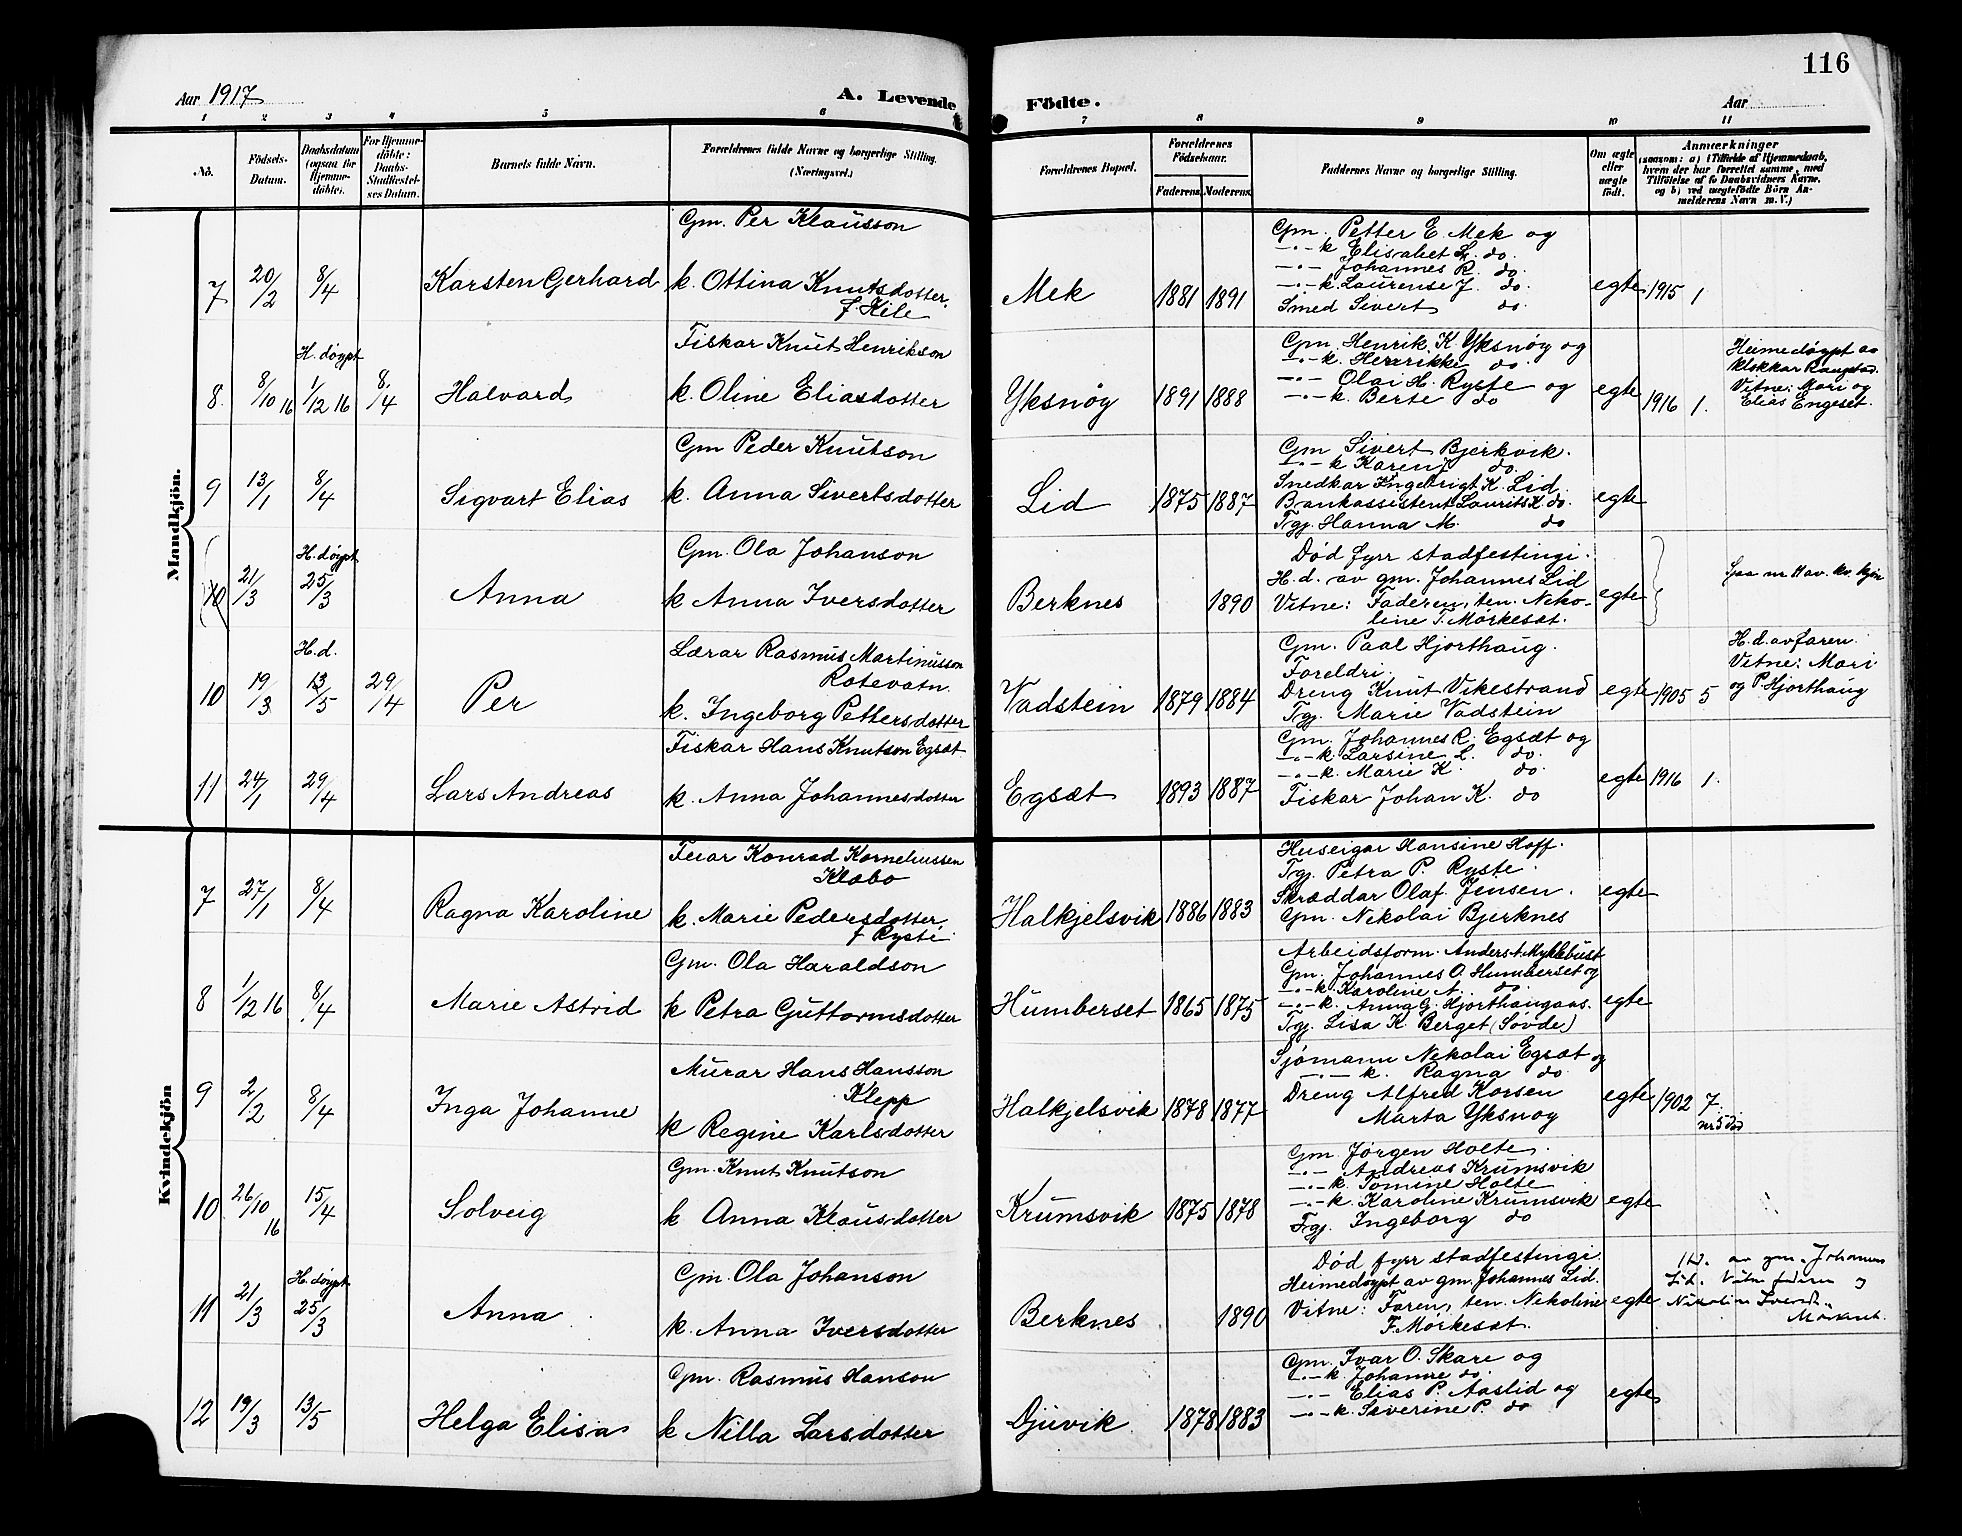 116
Aar 1917
A. Levende Födte.
Aar
1 2 3 4 5 6 7 8 9 10 11
No.
Födsels-Datum.
Daabsdatum (ogsaa for Hjemmedöbte).
For Hjemmedöbte: Daabs-Stadfæstelses Datum.
Barnets fulde Navn.
Forældrenes fulde Navne og borgerlige Stilling. (Næringsvei.)
Forældrenes Bopæl.
Forældrenes Födselsaar.
Faderens. Moderens.
Faddernes Navne og borgerlige Stilling.
Om ægte eller uægte födt.
Anmærkninger
(saasom: a) i Tilfælde af Hjemmedaab, hvem der har forrettet samme, med Tilföielse af to Daabsvidners Navne, og b) ved uægtefödte Börn Anmelderens Navn m. V.)
Mandkjön.
7 20/2 8/4 Karsten Gerhard
Gm. Per Klausson
k. Ottina Knutsdotter
f. Kile
Mek 1881 1891
Gm. Petter E. Mek og
—"— k Elisabet L. do.
—"— Johannes R. do.
—"— k. Laurense J. do.
Smed Sivert do.
egte 1915 1
8. 8/10 16 H. døypt 1/12 16 8./4 Halvard
Fiskar Knut Henrikson
k. Oline Eliasdotter
Yksnøy 1891 1888
Gm. Henrik K. Yksnøy og
—"— k. Henrikke do.
—"— Olai H. Ryste og
—"— k. Berte do
egte 1916 1.
Heimedøypt av
klokkar Raustad.
Vitne: Mari og
Elias Engeset.
9 13/1 8/4 Sigvart Elias
Gm Peder Knutson
k. Anna Sivertsdotter
Lid 1875 1887
Gm Sivert Bjerkvik.
—"— k Karen J. do.
Snedkar Ingebrigt K. Lid.
Bankassistent Laurits K. do.
Tgj. Hanna M. do
egte
10 21/3 H. døypt 25/3 Anna
Gm. Ola Johanson
k Anna Iversdotter
Berknes 1890
Død fyrr stadfestingi.
H. d. av gm. Johannes Lid
Vitne: Faderen, ten. Neko-
line T. Mörkesæt.
egte
Spa nr 11 av. kv. kjön
10 19/3 H. d. 13/5 29/4 Per
Lærar Rasmus Martinusson
Rotevatn.
k. Ingeborg Pettersdotter
Vadstein 1879 1884
Gm. Paal Hjorthaug.
Foreldri.
Dreng Knut Vikestrand
Tgj. Marie Vadstein
egte 1905 5
H. d. av faren.
Vitne: Mari
og P. Hjorthaug
11 24/1 29/4 Lars Andreas
Fiskar Hans Knutson Egsæt
k. Anna Johannesdotter
Egsæt 1893 1887
Gm. Johannes R. Egsæt og
—"— k Larsine L. do.
—"— k. Marie K. do.
Fiskar Johan K. do
egte 1916 1.
Kvindekjön
7 27/1 8/4 Ragna Karoline
Feiar Konrad Korneliussen
Klæbo
k. Marie Pedersdotter
f Ryste
Halkjelsvik 1886 1883
Huseigar Hansine Hoff.
Tgj. Petra P. Ryste.
Skræddar Olaf Jensen.
Gm. Nikolai Bjerknes
egte
8 1/12 16 8/4 Marie Astrid
Gm. Ola Haraldson
k Petra Guttormsdotter
Humberset 1865 1875
Arbeidsform. Anders A. Myklebust
Gm. Johannes O. Humberset og
—"— k Karoline A. do.
—"— k. Anna G. Hjorthaugaas.
Tgj. Lisa K. Berget (Søvde)
egte
9 2/2 8/4 Inga Johanne
Murar Hans Hansson
Klepp
k Regine Karlsdotter
Halkjelsvik 1878 1877
Sjömann Nekolai Egsæt og
—"— k. Ragna do
Dreng Alfred Korsen
Marta Yksnøy
egte 1902 7
nr 5 död
10 26/10 16 15/4 Solveig
Gm. Knut Knutson
k Anna Klausdotter
Krumsvik 1875 1878
Gm. Jörgen Holte.
—"— Andreas Krumsvik
—"— k Tomine Holte
—"— k. Karoline Krumsvik
Tgj. Ingeborg do
egte
11 21/3 H. døypt 25/3 Anna
Gm. Ola Johanson
k. Anna Iversdotter
Berknes 1890
Død fyrr stadfestingi.
Heimedøypt av gm. Johannes Lid.
Vitne: Faren, ten. Nekoline
T. Mörkesæt.
egte
Hd. av gm. Johannes
Lid. Vitne faderen og
Nikoline
12 19/3 13/5 Helga Elisa
Gm. Rasmus Hanson
k Nilla Larsdotter
Djuvik 1878 1883
Gm. Ivar O. Skare og
—"— k Johanne do.
—"— Elias P. Aaslid og
—"— k. Severine P. do
egte